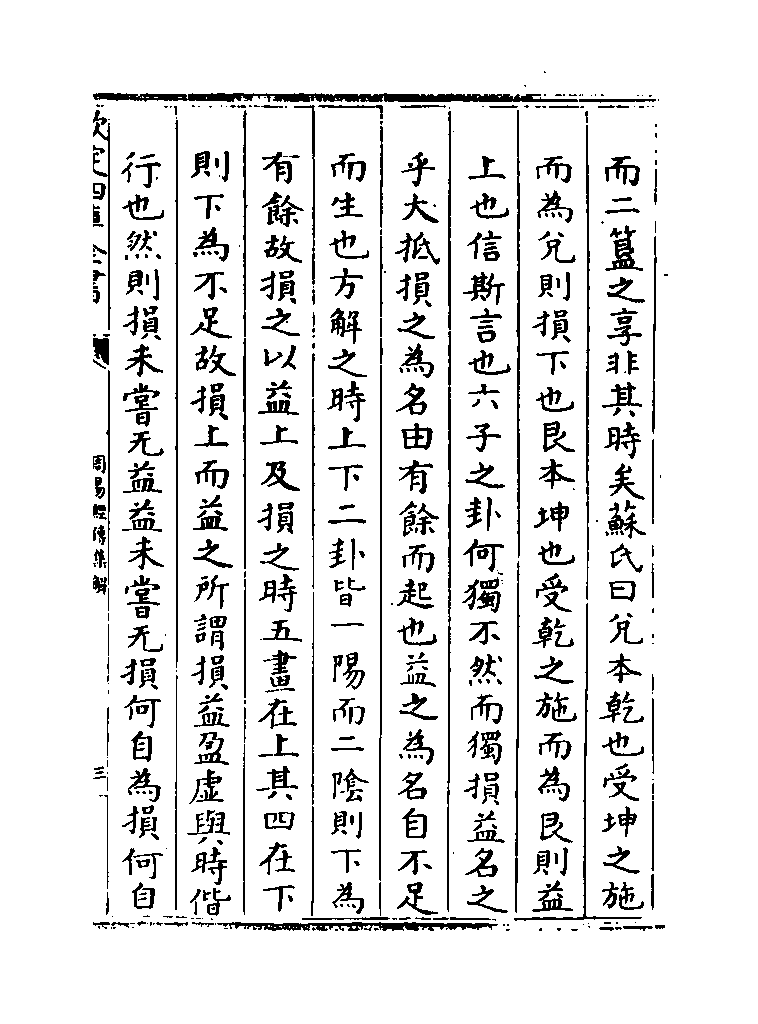 而二簋之享非其時矣蘇氏曰兌本乾也受坤之施
而為兌則損下也艮本坤也受乾之施而為艮則益
上也信斯言也六子之卦何獨不然而獨損益名之
乎大抵損之為名由有餘而起也益之為名自不足
而生也方解之時上下二卦皆一陽而二陰則下為
有餘故損之以益上及損之時五畫在上其四在下
則下為不足故損上而益之所謂損益盈虛與時偕
行也然則損未嘗无益益未嘗无損何自為損何自
欽定四庫全書
周易經傳集解
三